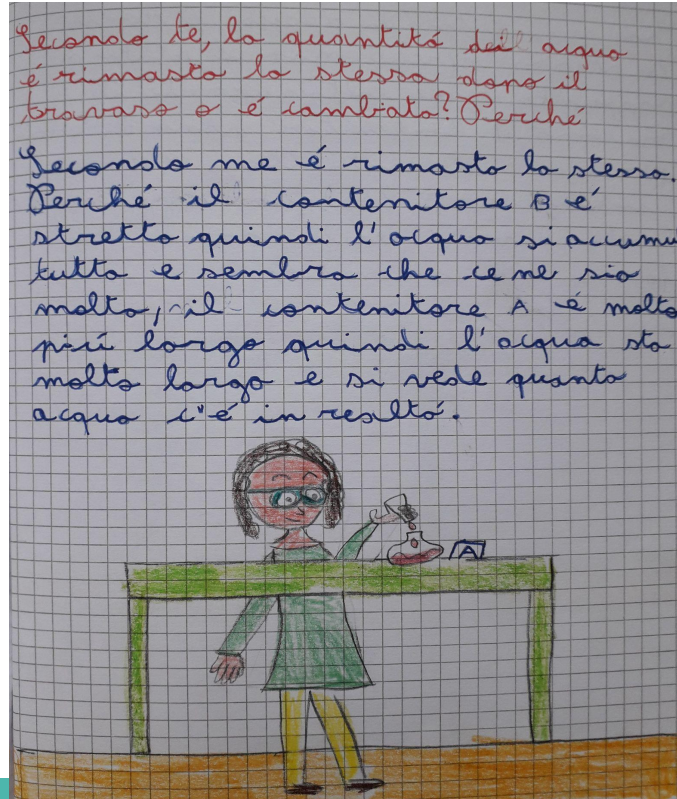 Secondo te, la quantitá di acqua
é rimasta la stessa dopo il
travaso o é cambiata? Perché
Secondo me é rimasta la stessa.
Perché il contenitore B é
stretto quindi l'acqua si accumu
tutta e sembra che ce ne sia
molta, il contenitore A é molto
piú largo quindi l'acqua sta
molto larga e si vede quanta
acqua c'é in realtá.
A